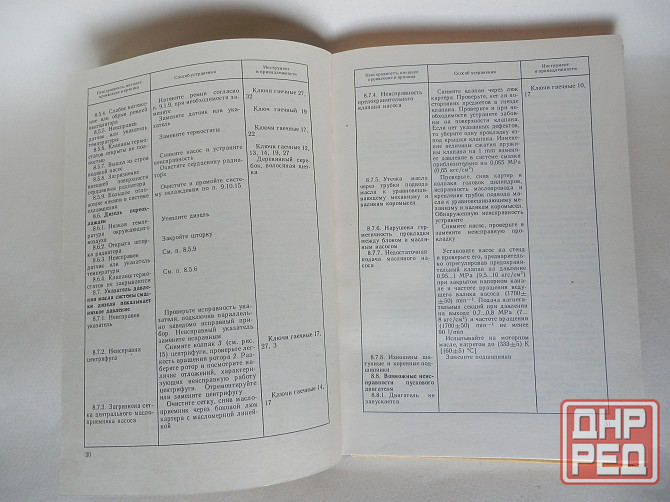 Неисправность, внешнее
проявление и причина
Способ устранения
Инструмент
и принадлежности
8.5.4. Слабое натяже-
ние или обрыв ремней
вентилятора
Натяните ремни согласно
п. 9.1.9, при необходимости за-
мените
Ключи гаечные 27,
32
8.5.5. Неисправен
датчик или указатель
температуры
Замените датчик или ука-
затель
Ключ гаечный 19
8.5.6. Клапаны термо-
статов открыты не пол-
ностью
Замените термостаты
Ключи гаечные 17,
22
8.5.7. Вышел из строя
водяной насос
Снимите насос и устраните
неисправность
Ключи гаечные 12,
13, 14, 19, 27
8.5.8. Загрязнение
внешней поверхности
сердцевины радиатора
Очистите сердцевину радиа-
тора
Деревянный скре-
бок, волосяная щет-
ка
8.5.9. Большое отло-
жение накипи в системе
охлаждения
Очистите и промойте систе-
му охлаждения по п. 9.10.15
8.6. Дизель переох-
лажден
8.6.1. Низкая темпе-
ратура окружающего
воздуха
Утеплите дизель
8.6.2. Открыта штор-
ка радиатора
Закройте шторку
8.6.3. Неисправен
датчик или указатель
температуры
См. п. 8.5.9
8.6.4. Клапаны термо-
статов не закрываются
См. п. 8.5.6
8.7. Указатель давле-
ния масла системы смаз-
ки дизеля показывает
низкое давление
8.7.1. Неисправен
указатель
Проверьте исправность ука-
зателя, подключив параллель-
но заведомо исправный при-
бор. Неисправный указатель
замените исправным
8.7.2. Неисправна
центрифуга
Снимите колпак 3 (см. рис.
15) центрифуги, проверьте лег-
кость вращения ротора 2. Раз-
берите ротор и посмотрите на-
личие отложений, характери-
зующих неисправную работу
центрифуги. Отремонтируйте
или замените центрифугу
Ключи гаечные 17,
27, 3
8.7.3. Загрязнена сет-
ка центрального масло-
приемника насоса
Очистите сетку, сняв масло-
приемник через боковой люк
картера с масломерной линей-
кой
Ключи гаечные 14,
17
30
Неисправность, внешнее
проявление и причина
Способ устранения
Инструмент
и принадлежности
8.7.4. Неисправность
предохранительного
клапана насоса
Снимите клапан через люк
картера. Проверьте, нет ли по-
сторонних предметов в гнезде
клапана. Проверьте и при не-
обходимости устраните забои-
ны на поверхности клапана.
Если нет указанных дефектов,
то уберите одну прокладку из-
под крышки клапана. Изме-
нение величины сжатия пружи-
ны клапана на 1 мм изменяет
давление в системе смазки
приблизительно на 0,065 МПа
(0,65 кгс/см²)
Ключи гаечные 10,
17
8.7.5. Утечка масла
через трубки подвода
масла к уравновешиваю-
щему механизму и
валикам коромысел
Проверьте, сняв картер и
колпаки головок цилиндров,
исправность маслопровода и
крепление трубок подвода мас-
ла к уравновешивающему меха-
низму и валикам коромысел.
Обнаруженную неисправность
устраните
8.7.6. Нарушена гер-
метичность прокладки
между блоком и масля-
ным насосом
Снимите насос, проверьте и
замените неисправную про-
кладку
8.7.7. Недостаточная
подача масляного на-
соса
Установите насос на стенд
и проверьте его, предваритель-
но отрегулировав предохрани-
тельный клапан на давление
0,95...1 МПа (9,5...10 кгс/см²)
при закрытом напорном кана-
ле и частоте вращения веду-
щего валика насоса (1700±
±50) мин⁻¹. Подача нагнета-
тельных секций при давлении
на выходе 0,7...0,8 МПа (7...
8 кгс/см²) и частоте вращения
(1700±50) мин⁻¹ не менее
90 л/мин
Испытывайте на моторном
масле, нагретом до (333±5) К
[(60±5) °С]
8.7.8. Изношены ша-
тунные и коренные под-
шипники
Замените подшипники
8.8. Возможные неис-
правности пускового
двигателя
8.8.1. Двигатель не
запускается
31
ДНР
РЕД